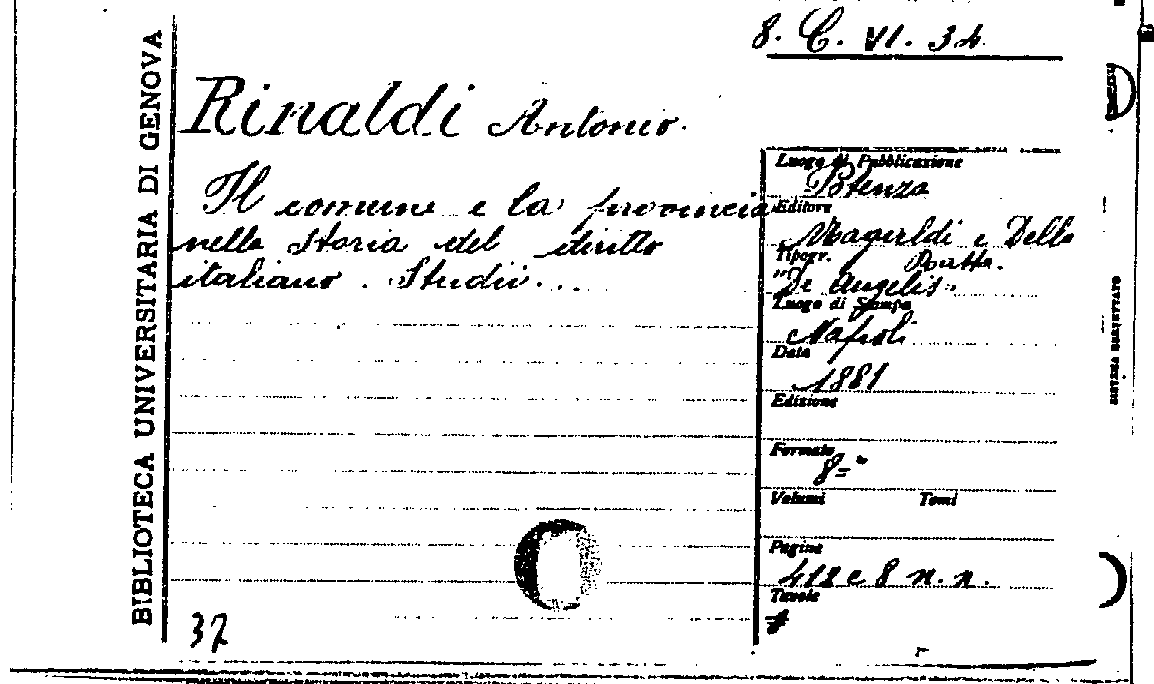 8. C. VI. 34
BIBLIOTECA UNIVERSITARIA DI GENOVA
Rinaldi Antonio.
Il comune e la provincia
nella storia del diritto
italiano. Studii...
Luogo di Pubblicazione
Potenza
Editore
Magaldi e Della
Ratta.
Tipogr.
"De Angelis"
Luogo di Stampa
Napoli
Data
1881
Edizione
Formato
8=°
Volumi Tomi
Pagine
412 e 8 n. n.
Tavole
37